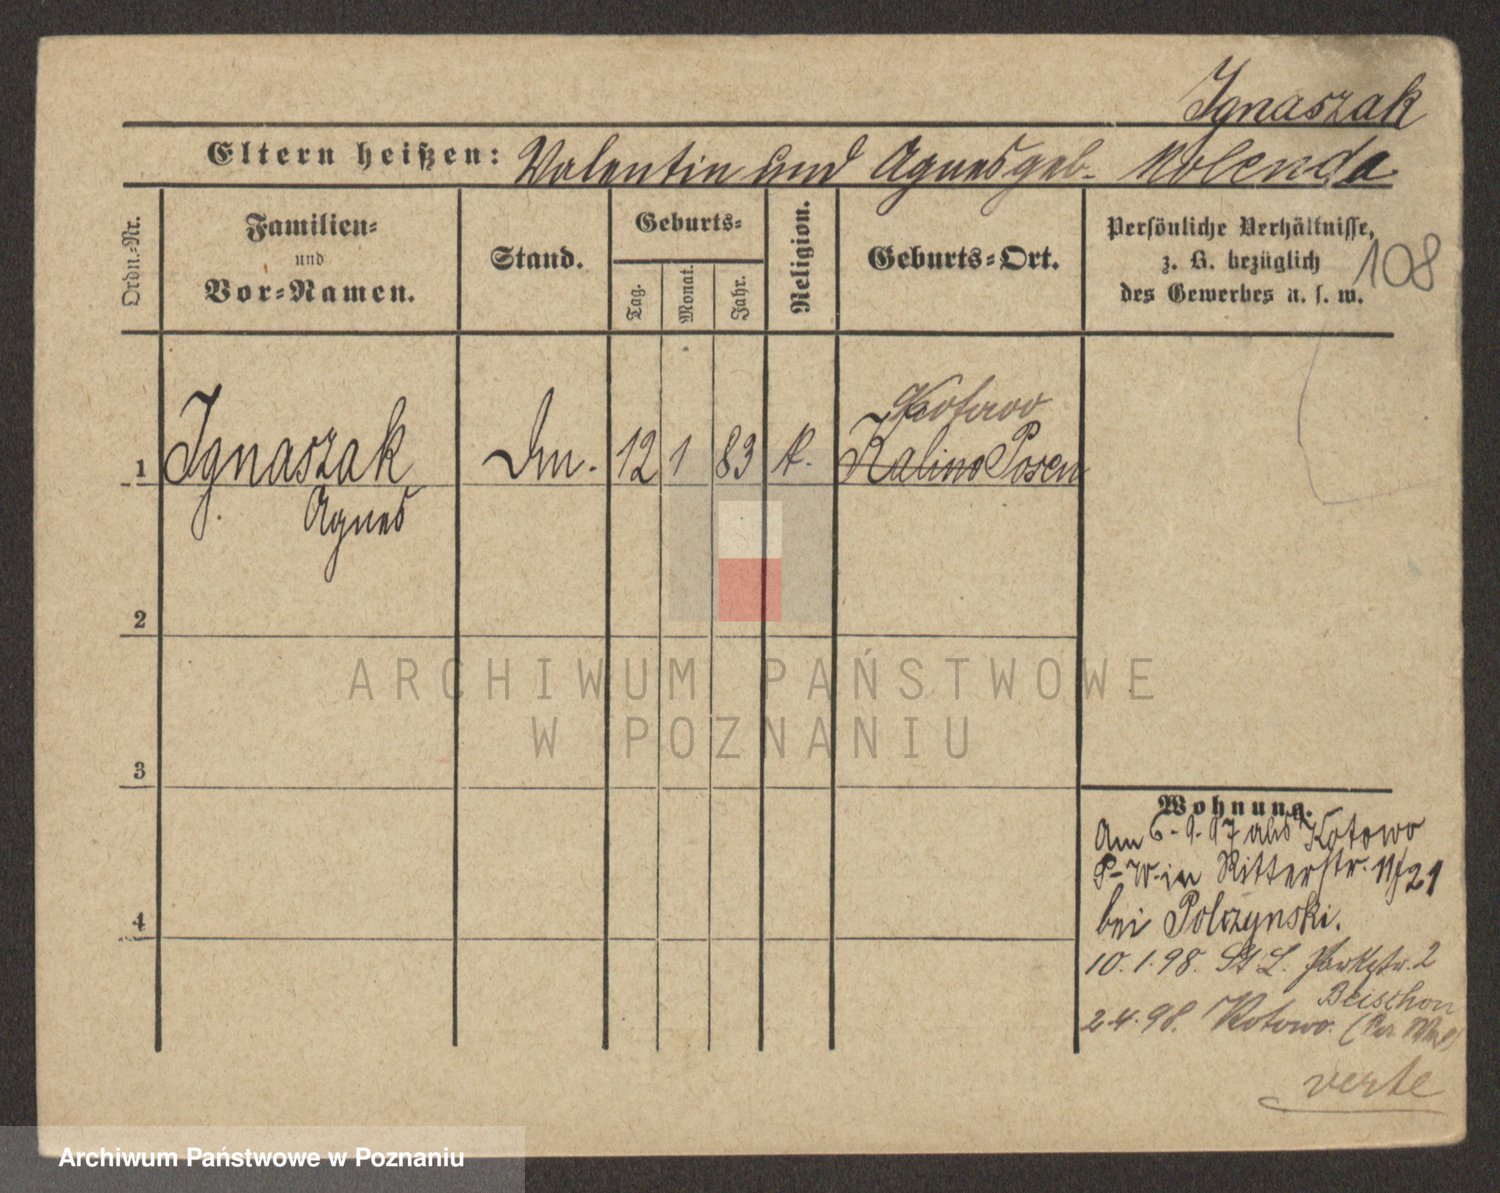 Ignaszak
Eltern heißen: Valentin und Agnes geb. Kolenda.
Ordn.-Nr.
Familien-
und
Vor-Namen.
Stand.
Geburts-
Tag.
Monat.
Jahr.
Religion.
Geburts-Ort.
Persönliche Verhältnisse,
z. B. bezüglich
des Gewerbes u. s. w.
108
Kotowo
1 Ignaszak Dm. 12 1 83 k. Kalino Posen
Agnes
2
3
4
Wohnung.
Am 6-9-97 aus Kotowo
P-W in Ritterstr. 11/21
bei Polczynski.
10.1.98. St L. Parkstr. 2
Beischon
2.4.98. Kotowo.
verte
ARCHIWUM PAŃSTWOWE
W POZNANIU
Archiwum Państwowe w Poznaniu